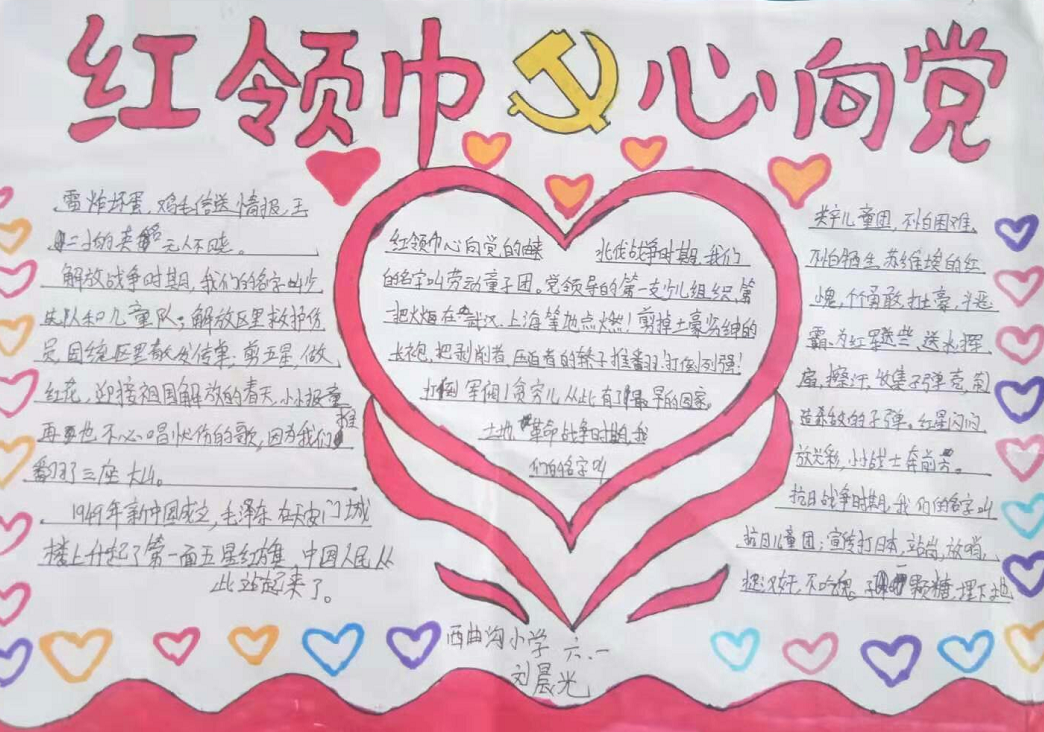 红领巾心向党
红领巾心向党的由来 北伐战争时期,我们
的名字叫劳动童子团。党领导的第一支少儿组织,第一
把火焰在武汉、上海等地点燃!剪掉土豪劣绅的
长袍,把剥削者、压迫者的轿子推翻!打倒列强!
打倒军阀!贫穷儿从此有了最早的国家。
土地革命战争时期,我
们的名字叫
共产儿童团,不怕困难,
不怕牺牲,苏维埃的红
小鬼,个个勇敢,扯豪、斗恶
霸,为红军送盐、送水、挥
扇、擦汗,收集子弹壳,制
造杀敌的子弹。红星闪闪
放光彩,小小战士奔前方。
抗日战争时期,我们的名字叫
抗日儿童团;宣传打日本,站岗、放哨、
捉汉奸,不吃鬼子一颗糖,埋下地
雷炸坏蛋,鸡毛信送情报,王
二小的英名无人不晓。
解放战争时期,我们的名字叫少
先队和儿童队;解放区里救护伤
员,国统区里散发传单;剪五星,做
红花,迎接祖国解放的春天,小小报童
再也不必唱忧伤的歌,因为我们推
翻了三座大山。
1949年新中国成立,毛泽东在天安门城
楼上升起了第一面五星红旗,中国人民从
此站起来了。
西曲沟小学 六.一
刘晨光